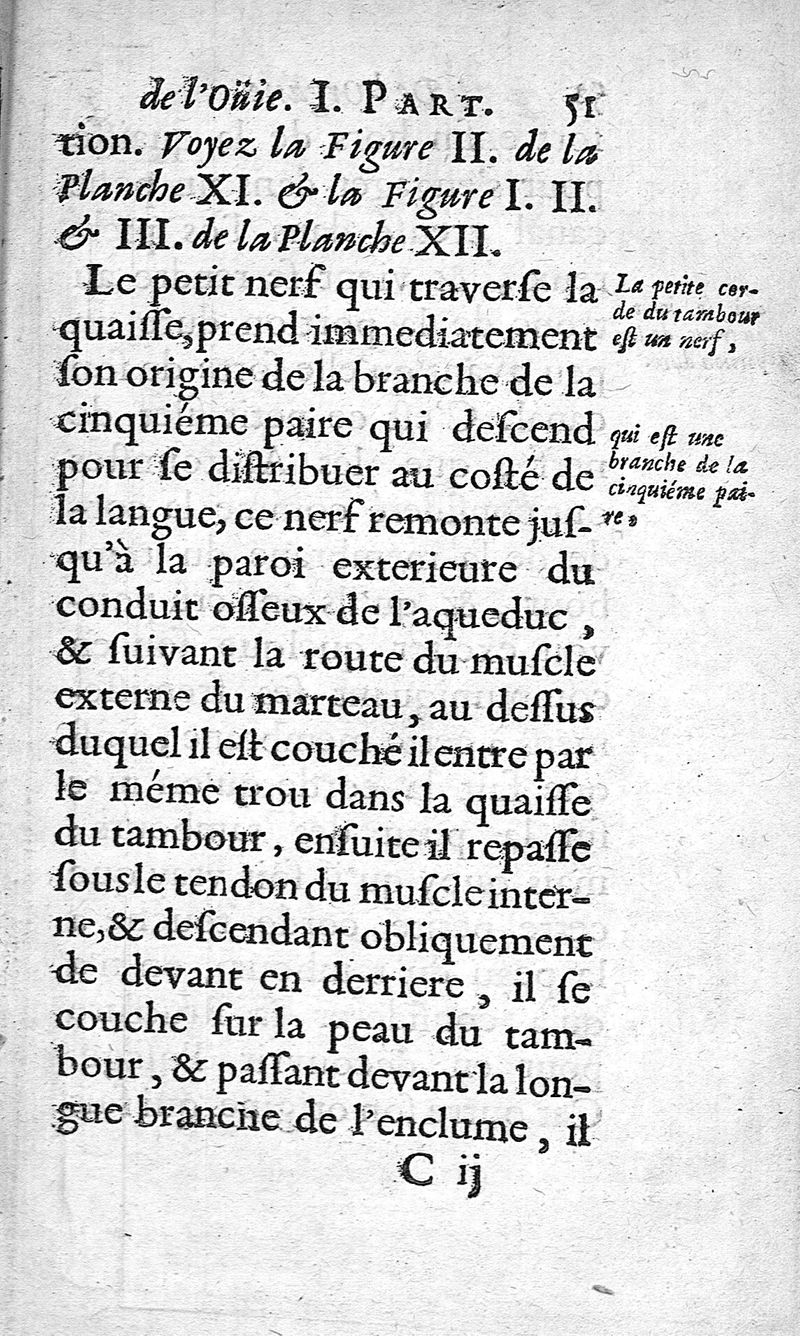 de l'Oüie. I. PART. 51
tion. Voyez la Figure II. de la
Planche XI. & la Figure I. II.
& III. de la Planche XII.
Le petit nerf qui traverſe la
quaiſſe, prend immediatement
ſon origine de la branche de la
cinquiéme paire qui deſcend
pour ſe diſtribuer au coſté de
la langue, ce nerf remonte juſ-
qu'à la paroi exterieure du
conduit oſſeux de l'aqueduc,
& ſuivant la route du muſcle
externe du marteau, au deſſus
duquel il eſt couché il entre par
le méme trou dans la quaiſſe
du tambour, enſuite il repaſſe
ſous le tendon du muſcle inter-
ne, & deſcendant obliquement
de devant en derriere, il ſe
couche ſur la peau du tam-
bour, & paſſant devant la lon-
gue branche de l'enclume, il
C ij
La petite cor-
de du tambour
eſt un nerf,
qui eſt une
branche de la
cinquiéme pai-
re,